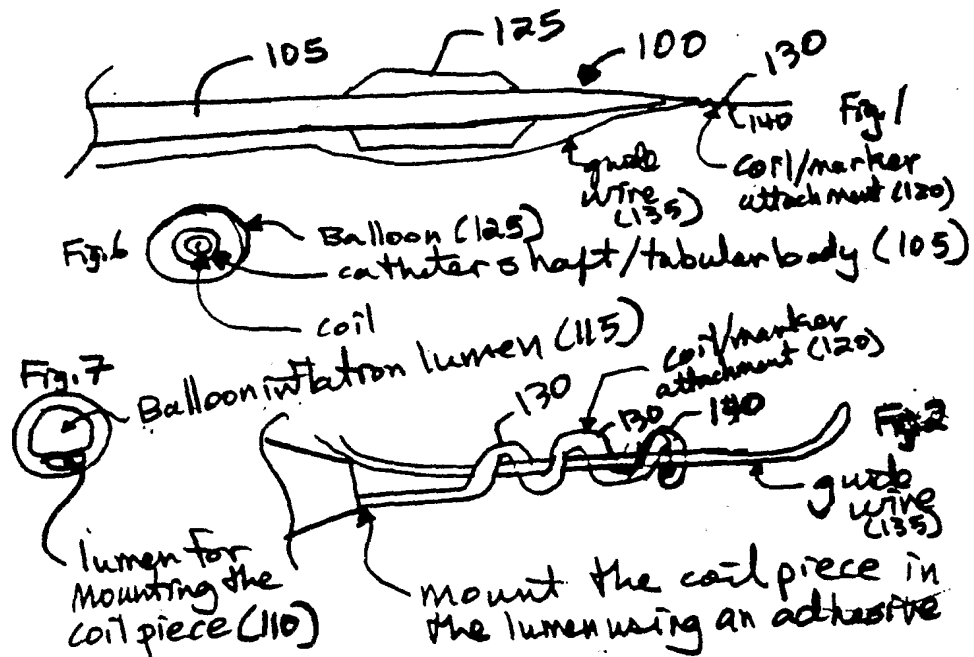 125
105
100
130
140
Fig. 1
guide
wire
(135)
coil/marker
attachment (120)
Fig. 6
Balloon (125)
catheter shaft/tabular body (105)
coil
Fig. 7
Balloon inflation lumen (115)
coil/marker
attachment (120)
130
130
140
guide
wire
(135)
lumen for
mounting the
coil piece (110)
mount the coil piece in
the lumen using an adhesive